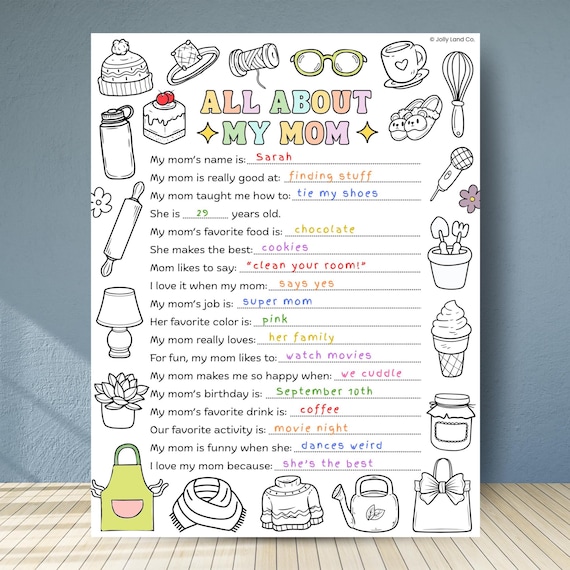 © Jolly Land Co.
ALL ABOUT
MY MOM
My mom's name is: Sarah
My mom is really good at: finding stuff
My mom taught me how to: tie my shoes
She is 29 years old.
My mom's favorite food is: chocolate
She makes the best: cookies
Mom likes to say: "clean your room!"
I love it when my mom: says yes
My mom's job is: super mom
Her favorite color is: pink
My mom really loves: her family
For fun, my mom likes to: watch movies
My mom makes me so happy when: we cuddle
My mom's birthday is: September 10th
My mom's favorite drink is: coffee
Our favorite activity is: movie night
My mom is funny when she: dances weird
I love my mom because: she's the best